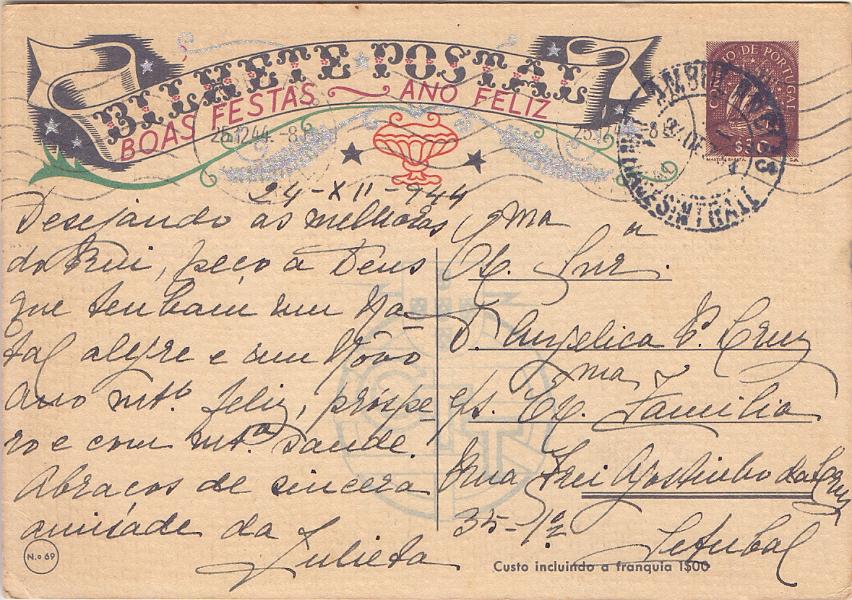 BILHETE POSTAL
BOAS FESTAS ANO FELIZ
CORREIO DE PORTUGAL
$30
25.12.44 - 8
24-XII-944
Desejando as melhoras
do Rui, peço a Deus
que tenham um Na-
tal alegre e um Nôvo
ano mt.º feliz, próspe-
ro e com mt.ª saude.
Abraços de sincera
amisade da
Julieta
Ex.ma Snr.ª
D. Angelica C. Cruz
e s. Ex.ma Familia
Rua Frei Agostinho da Cruz
35-1º
Setubal
CTT
N.o 69
Custo incluindo a franquia 1$00